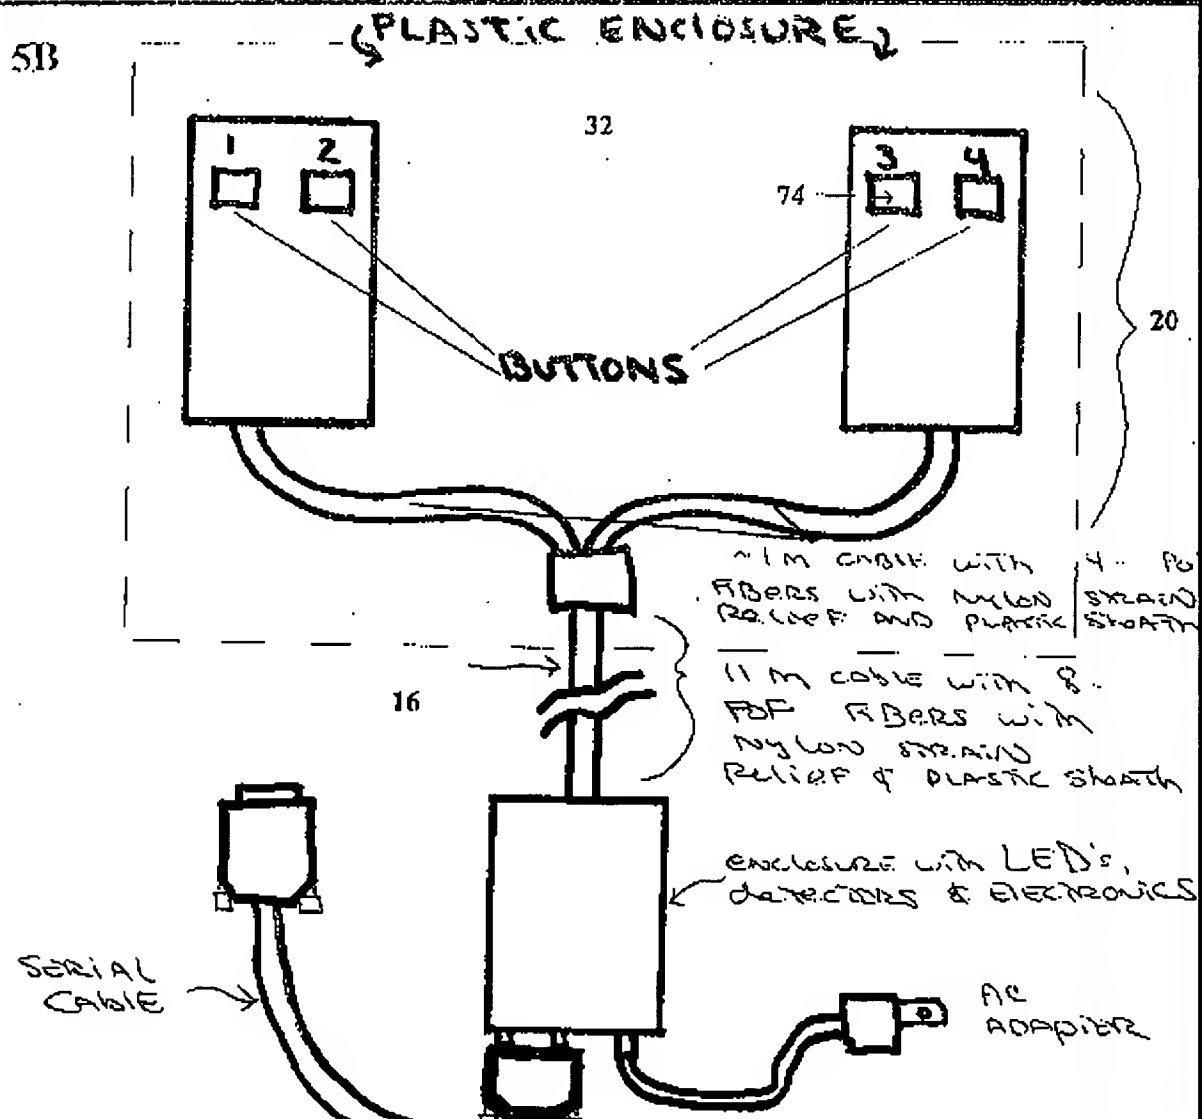 PLASTIC ENCLOSURE
5B
32
1 2
3 4
74
20
BUTTONS
~1 M CABLE WITH 4
FIBERS WITH NYLON STRAIN
RELIEF AND PLASTIC SHEATH
16
11 M CABLE WITH 8
POF FIBERS WITH
NYLON STRAIN
RELIEF & PLASTIC SHEATH
ENCLOSURE WITH LED's,
DETECTORS & ELECTRONICS
SERIAL
CABLE
AC
ADAPTER